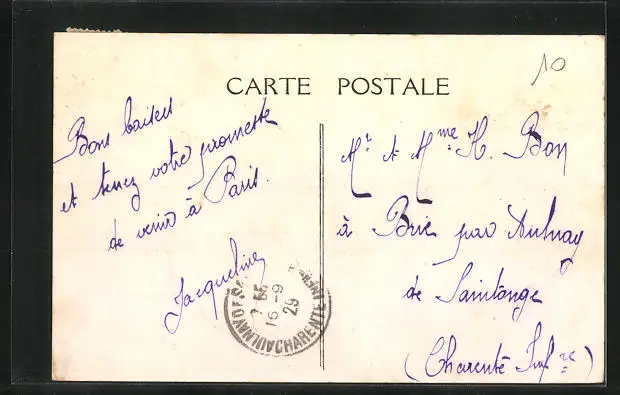 CARTE POSTALE
10
Bons baisers
et tenez votre promesse
de venir à Paris.
Jacqueline
Mr & Mme H. Bon
à Brie par Aulnay
de Saintonge
(Charente Infre)
AULNAY DE S
16-9
29
CHARENTE INFRE